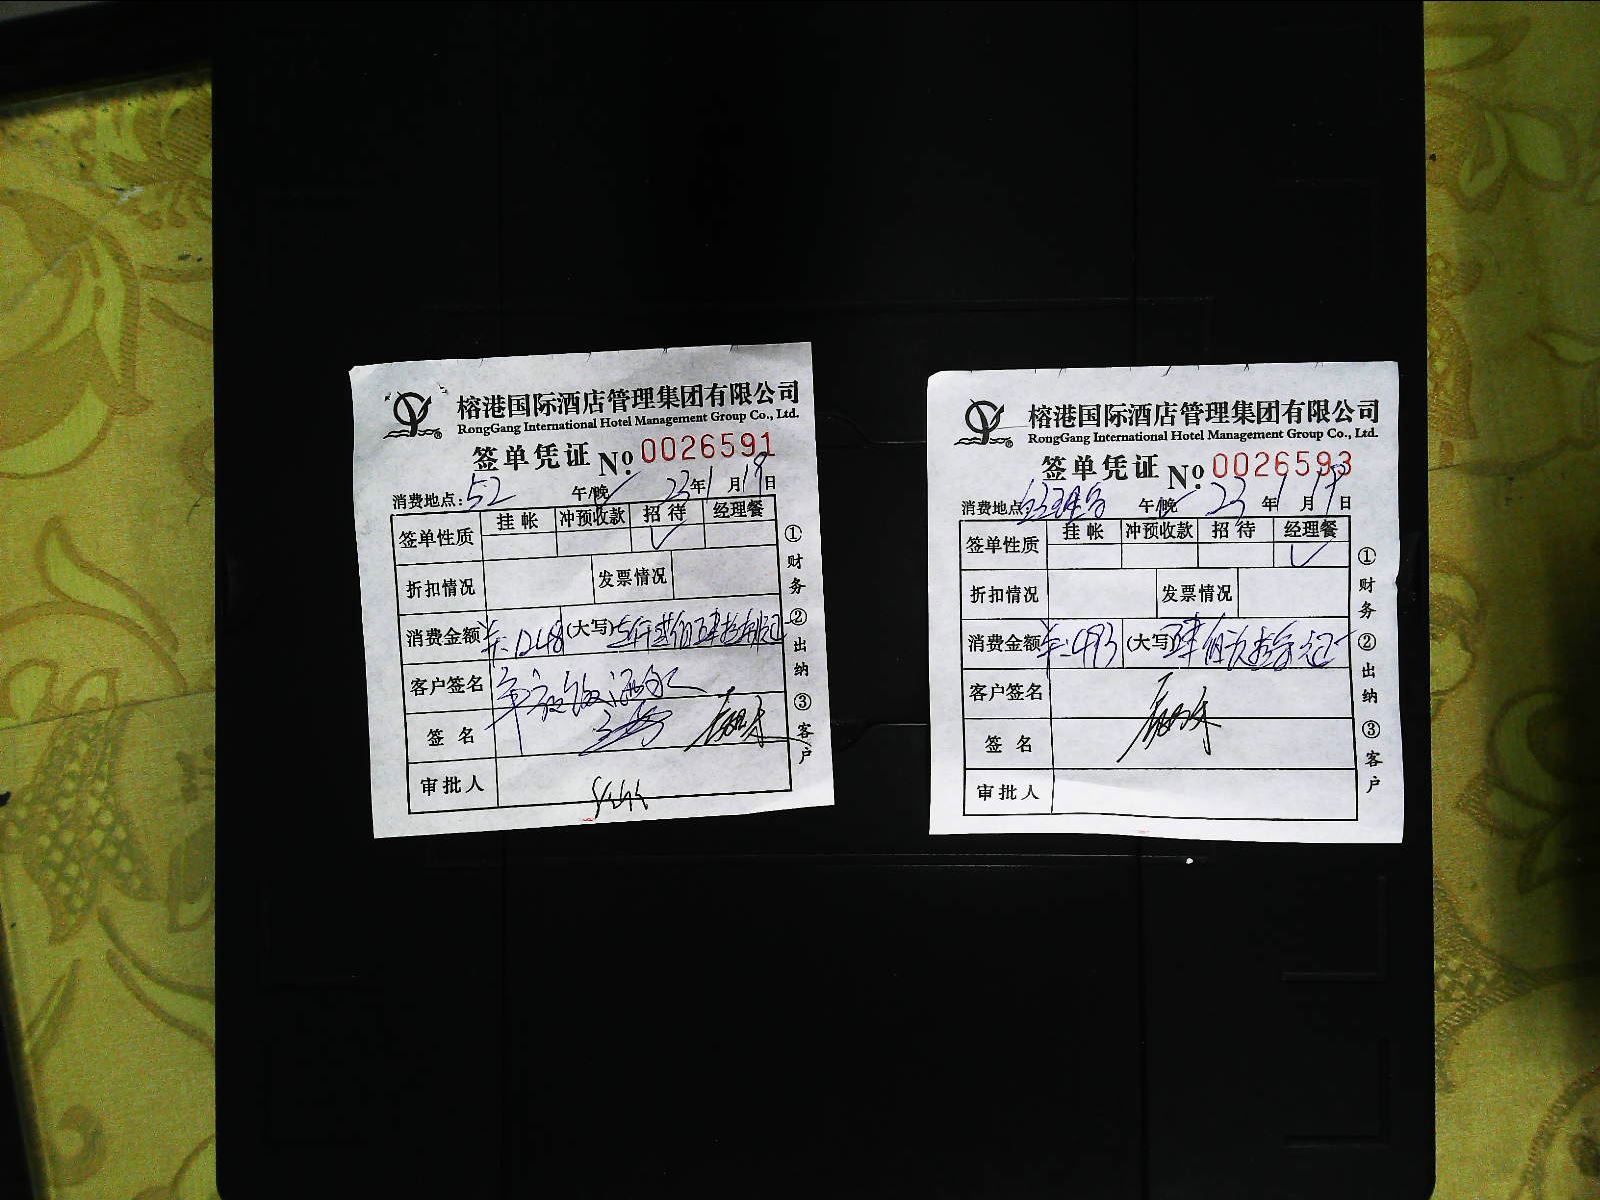 榕港国际酒店管理集团有限公司
RongGang International Hotel Management Group Co., Ltd.
签单凭证 No. 0026591
消费地点: 52 午/晚 23年1月19日
签单性质 挂帐 冲预收款 招待 经理餐
折扣情况 发票情况
消费金额 ¥:1248 (大写)
客户签名
签名
审批人
①财务 ②出纳 ③客户
榕港国际酒店管理集团有限公司
RongGang International Hotel Management Group Co., Ltd.
签单凭证 No. 0026593
消费地点 午/晚 23年1月19日
签单性质 挂帐 冲预收款 招待 经理餐
折扣情况 发票情况
消费金额 ¥:493 (大写)
客户签名
签名
审批人
①财务 ②出纳 ③客户